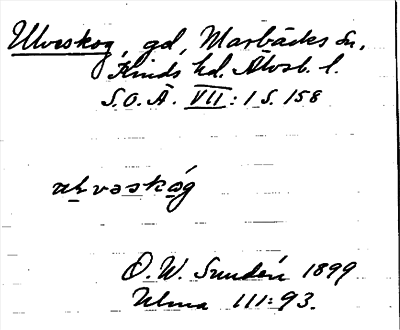 Ulveskog, gd, Marbäcks sn,
Kinds hd. Älvsb. l.
S.O.Ä. VII: 1 S. 158
ulvəskó̱g
O. W. Sundén 1899
Ulma 111:93.